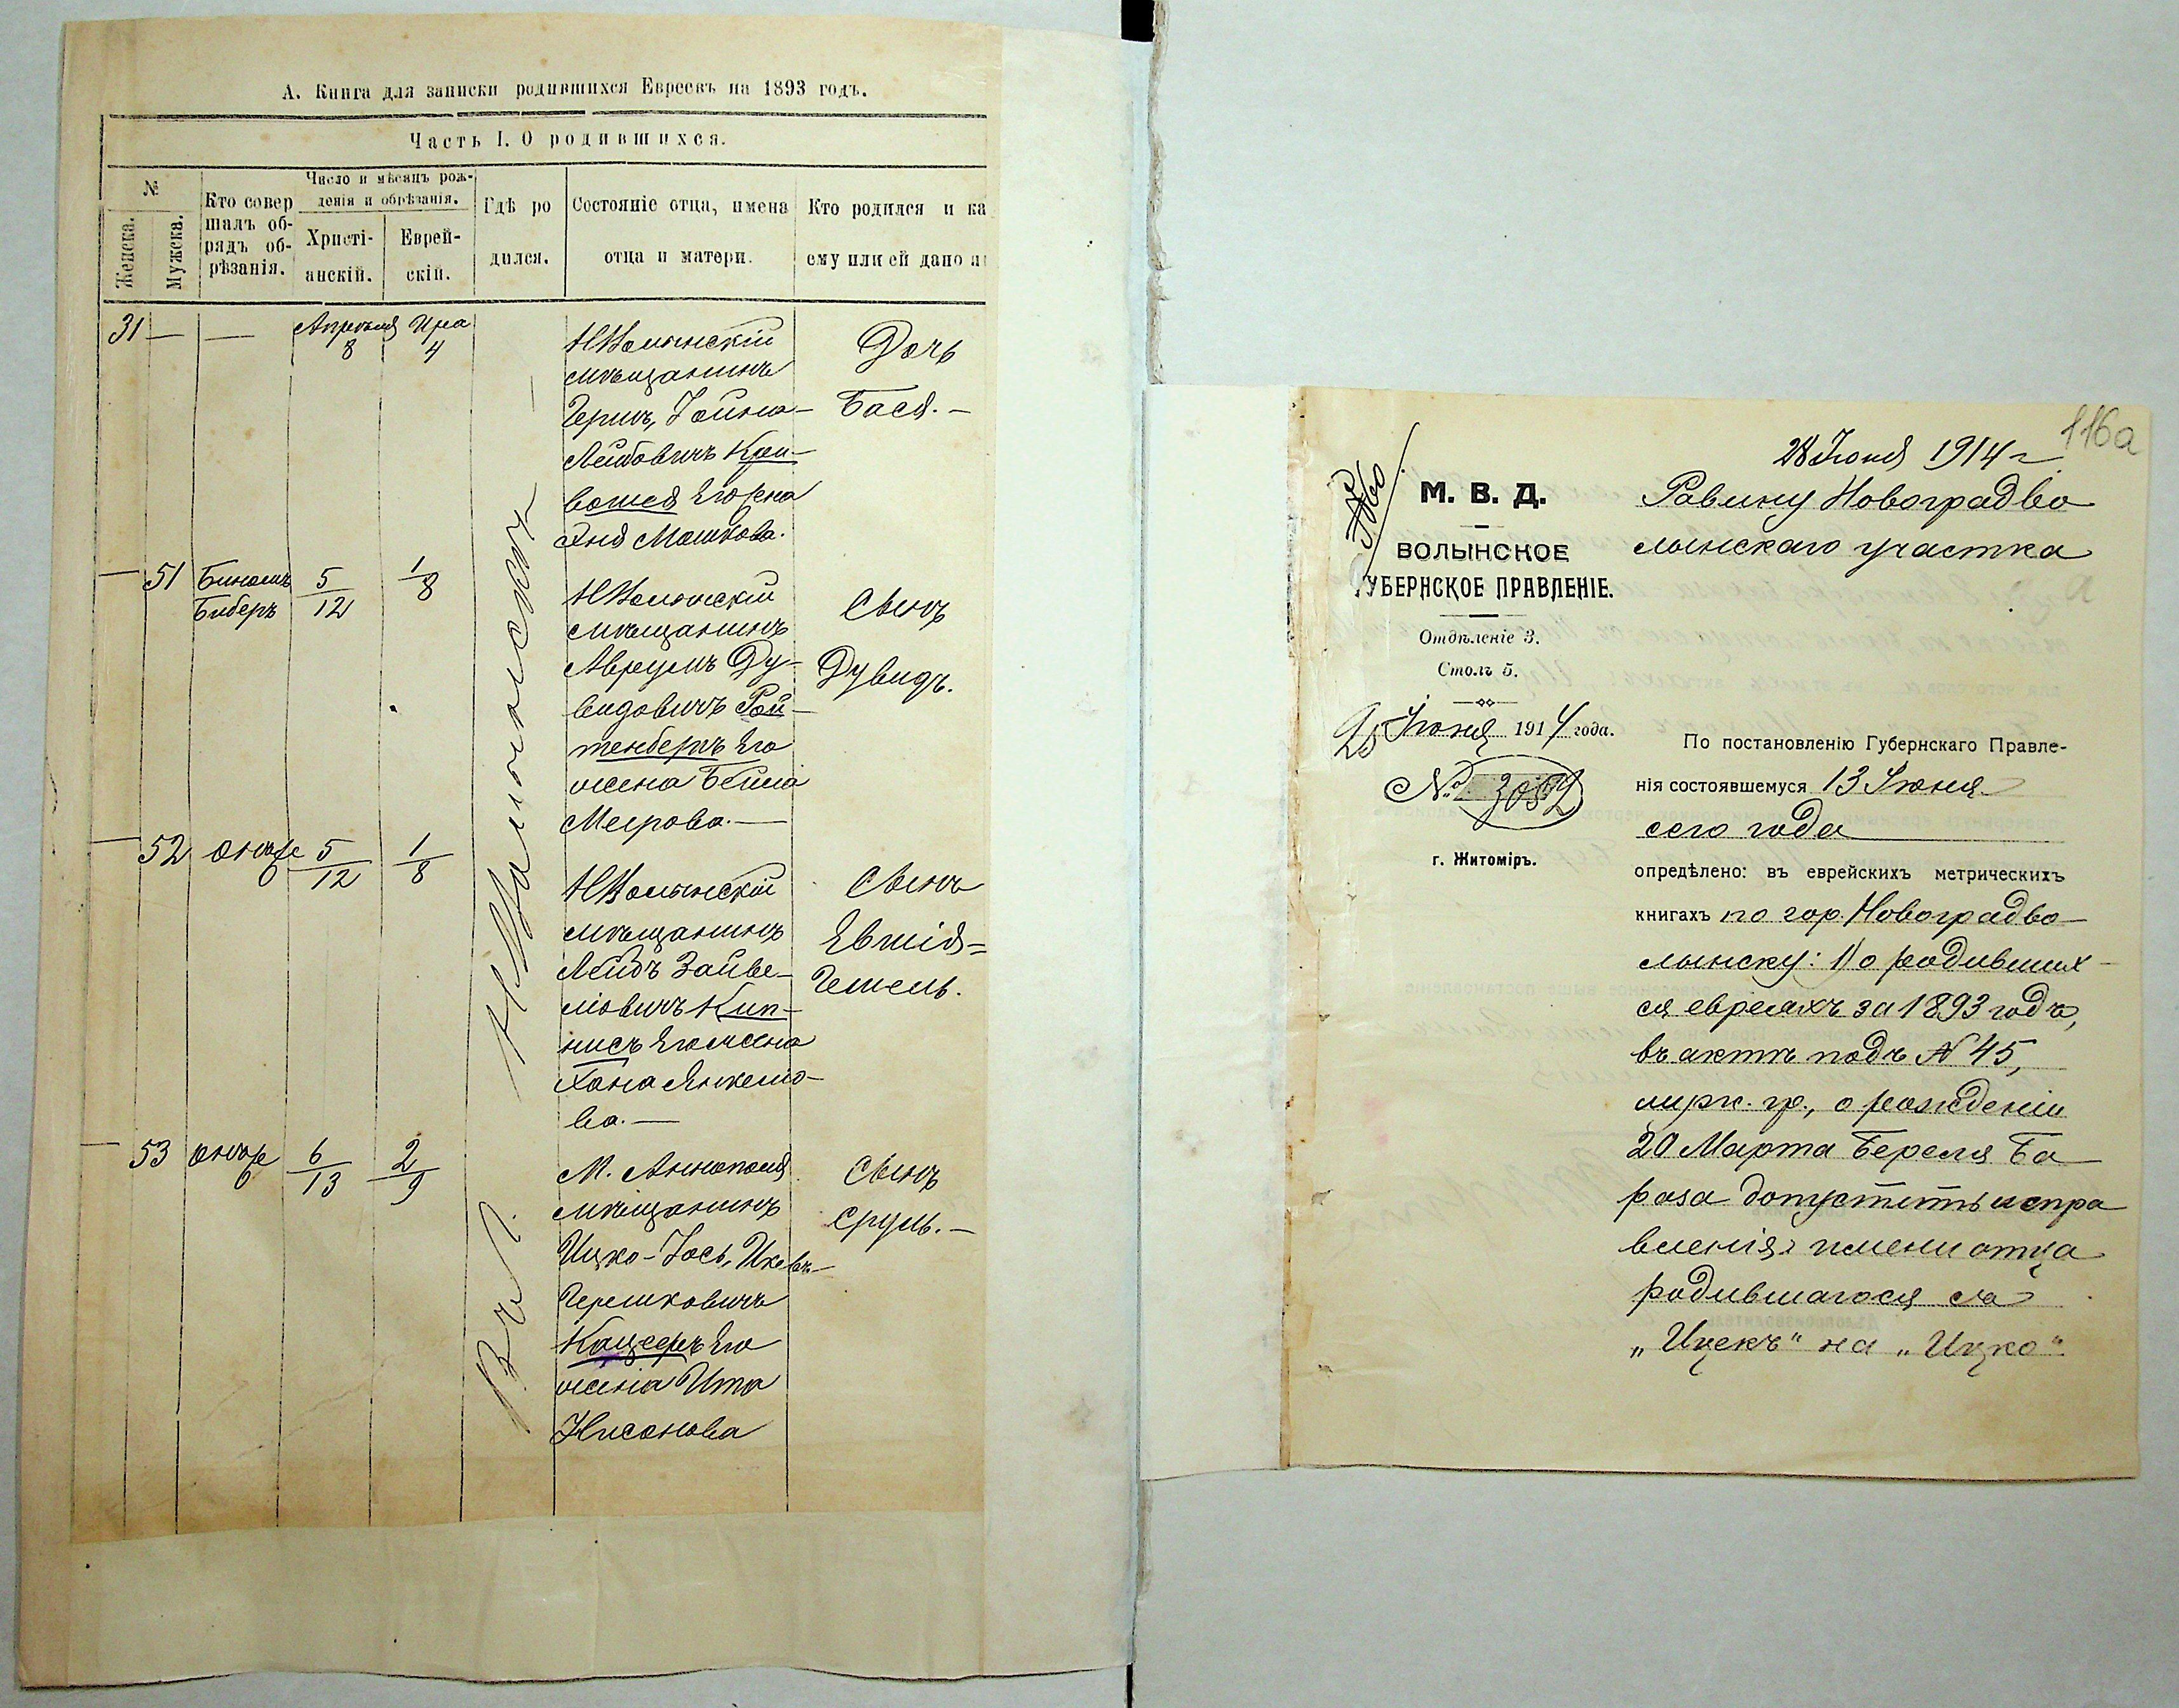 А. Книга для записки родившихся Евреевъ на 1893 годъ.
Часть I. О родившихся.
№
Женска.
Мужска.
Кто совер
шалъ об-
рядъ об-
рѣзанія.
Число и мѣсяцъ рож-
денія и обрѣзанія.
Христі-
анскій.
Еврей-
скій.
Гдѣ ро
дился.
Состояніе отца, имена
отца и матери.
Кто родился и ка
ему или ей дано и
31 — — Апреля 8 Ира 4
НВолынскій
мѣщанинъ
Гершъ, Іойна-
Лейбовичъ Кри-
вошея Его жена
Хня Мошкова.
Дочь
Бася. —
— 51 Биномъ
Биберъ
5/12 1/8
НВолынскій
мѣщанинъ
Аврумъ Ду-
видовичъ Рой-
тенбергъ Его
жена Бейла
Меерова. —
Сынъ
Дувидъ.
— 52 онъже 5/12 1/8
НВолынскій
мѣщанинъ
Лейбъ Зайве-
ліовичъ Кип-
нисъ Его жена
Хана Янкеліо-
ва. —
Сынъ
Евшія=
Гешель.
— 53 онъже 6/13 2/9
М. Аннополя
мѣщанинъ
Ицко-Іось,
Гершковичъ
Кацефъ Его
жена Ита
Нисонова
Сынъ
Сруль. —
Въ г. НВолынскѣ
116а
28 Іюня 1914 г.
Равину Новоградво
лынскаго участка
М. В. Д.
ВОЛЫНСКОЕ
ГУБЕРНСКОЕ ПРАВЛЕНІЕ.
Отдѣленіе 3.
Столъ 5.
25 Іюня 1914 года.
№ 3052
г. Житоміръ.
По постановленію Губернскаго Правле-
нія состоявшемуся 13 Іюня
сего года
опредѣлено: въ еврейскихъ метрическихъ
книгахъ по гор. Новоградво-
лынску: 1) о родивших-
ся евреяхъ за 1893 годъ,
въ актѣ подъ N 45,
мужс. гр., о рожденіи
20 Марта Береля Ба
раза допустить испра
вленія: имени отца
родившагося съ
„Ицекъ" на „Ицко"